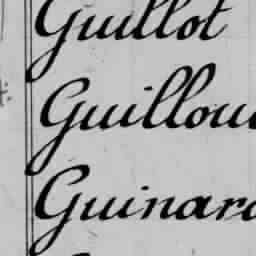 Guillot
Guillou
Guinard